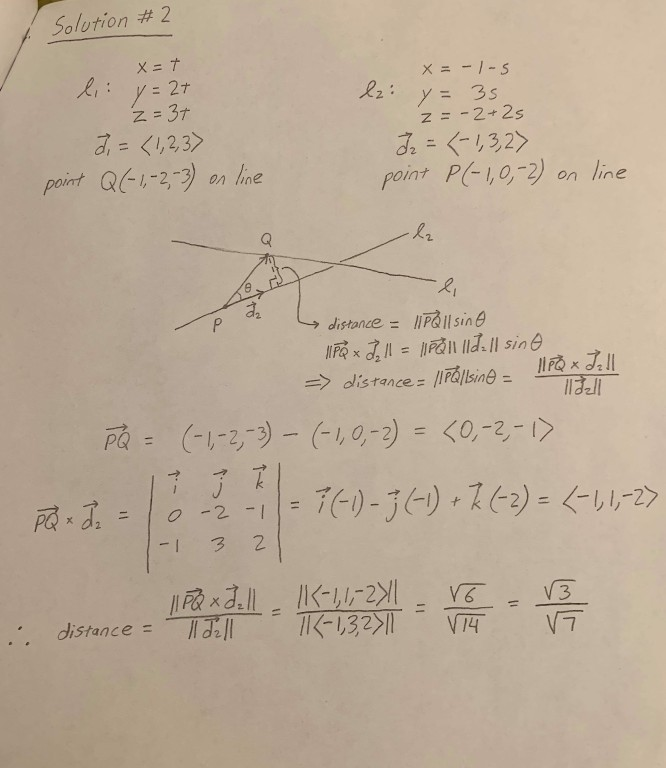 Solution #2
l₁: x = t
y = 2t
z = 3t
d⃗₁ = <1,2,3>
point Q(-1,-2,-3) on line
l₂: x = -1-s
y = 3s
z = -2+2s
d⃗₂ = <-1,3,2>
point P(-1,0,-2) on line
Q
l₂
θ
l₁
P
d⃗₂
→ distance = ||P⃗Q|| sinθ
||P⃗Q × d⃗₂|| = ||P⃗Q|| ||d⃗₂|| sinθ
⇒ distance = ||P⃗Q|| sinθ = ||P⃗Q × d⃗₂|| / ||d⃗₂||
P⃗Q = (-1,-2,-3) - (-1,0,-2) = <0,-2,-1>
P⃗Q × d⃗₂ = | i⃗ j⃗ k⃗ |
| 0 -2 -1 |
| -1 3 2 | = i⃗(-1) - j⃗(-1) + k⃗(-2) = <-1,1,-2>
∴ distance = ||P⃗Q × d⃗₂|| / ||d⃗₂|| = ||<-1,1,-2>|| / ||<-1,3,2>|| = √6 / √14 = √3 / √7